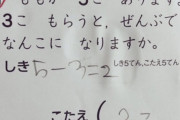 ももが 5こ あります。
3こ もらうと、ぜんぶで
なんこに なりますか。
しき5てん、こたえ5てん
しき 5-3=2
こたえ (